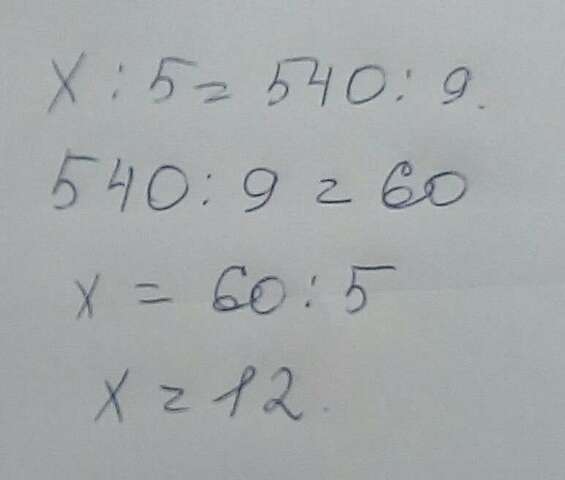 x : 5 = 540 : 9.
540 : 9 = 60
x = 60 : 5
x = 12.